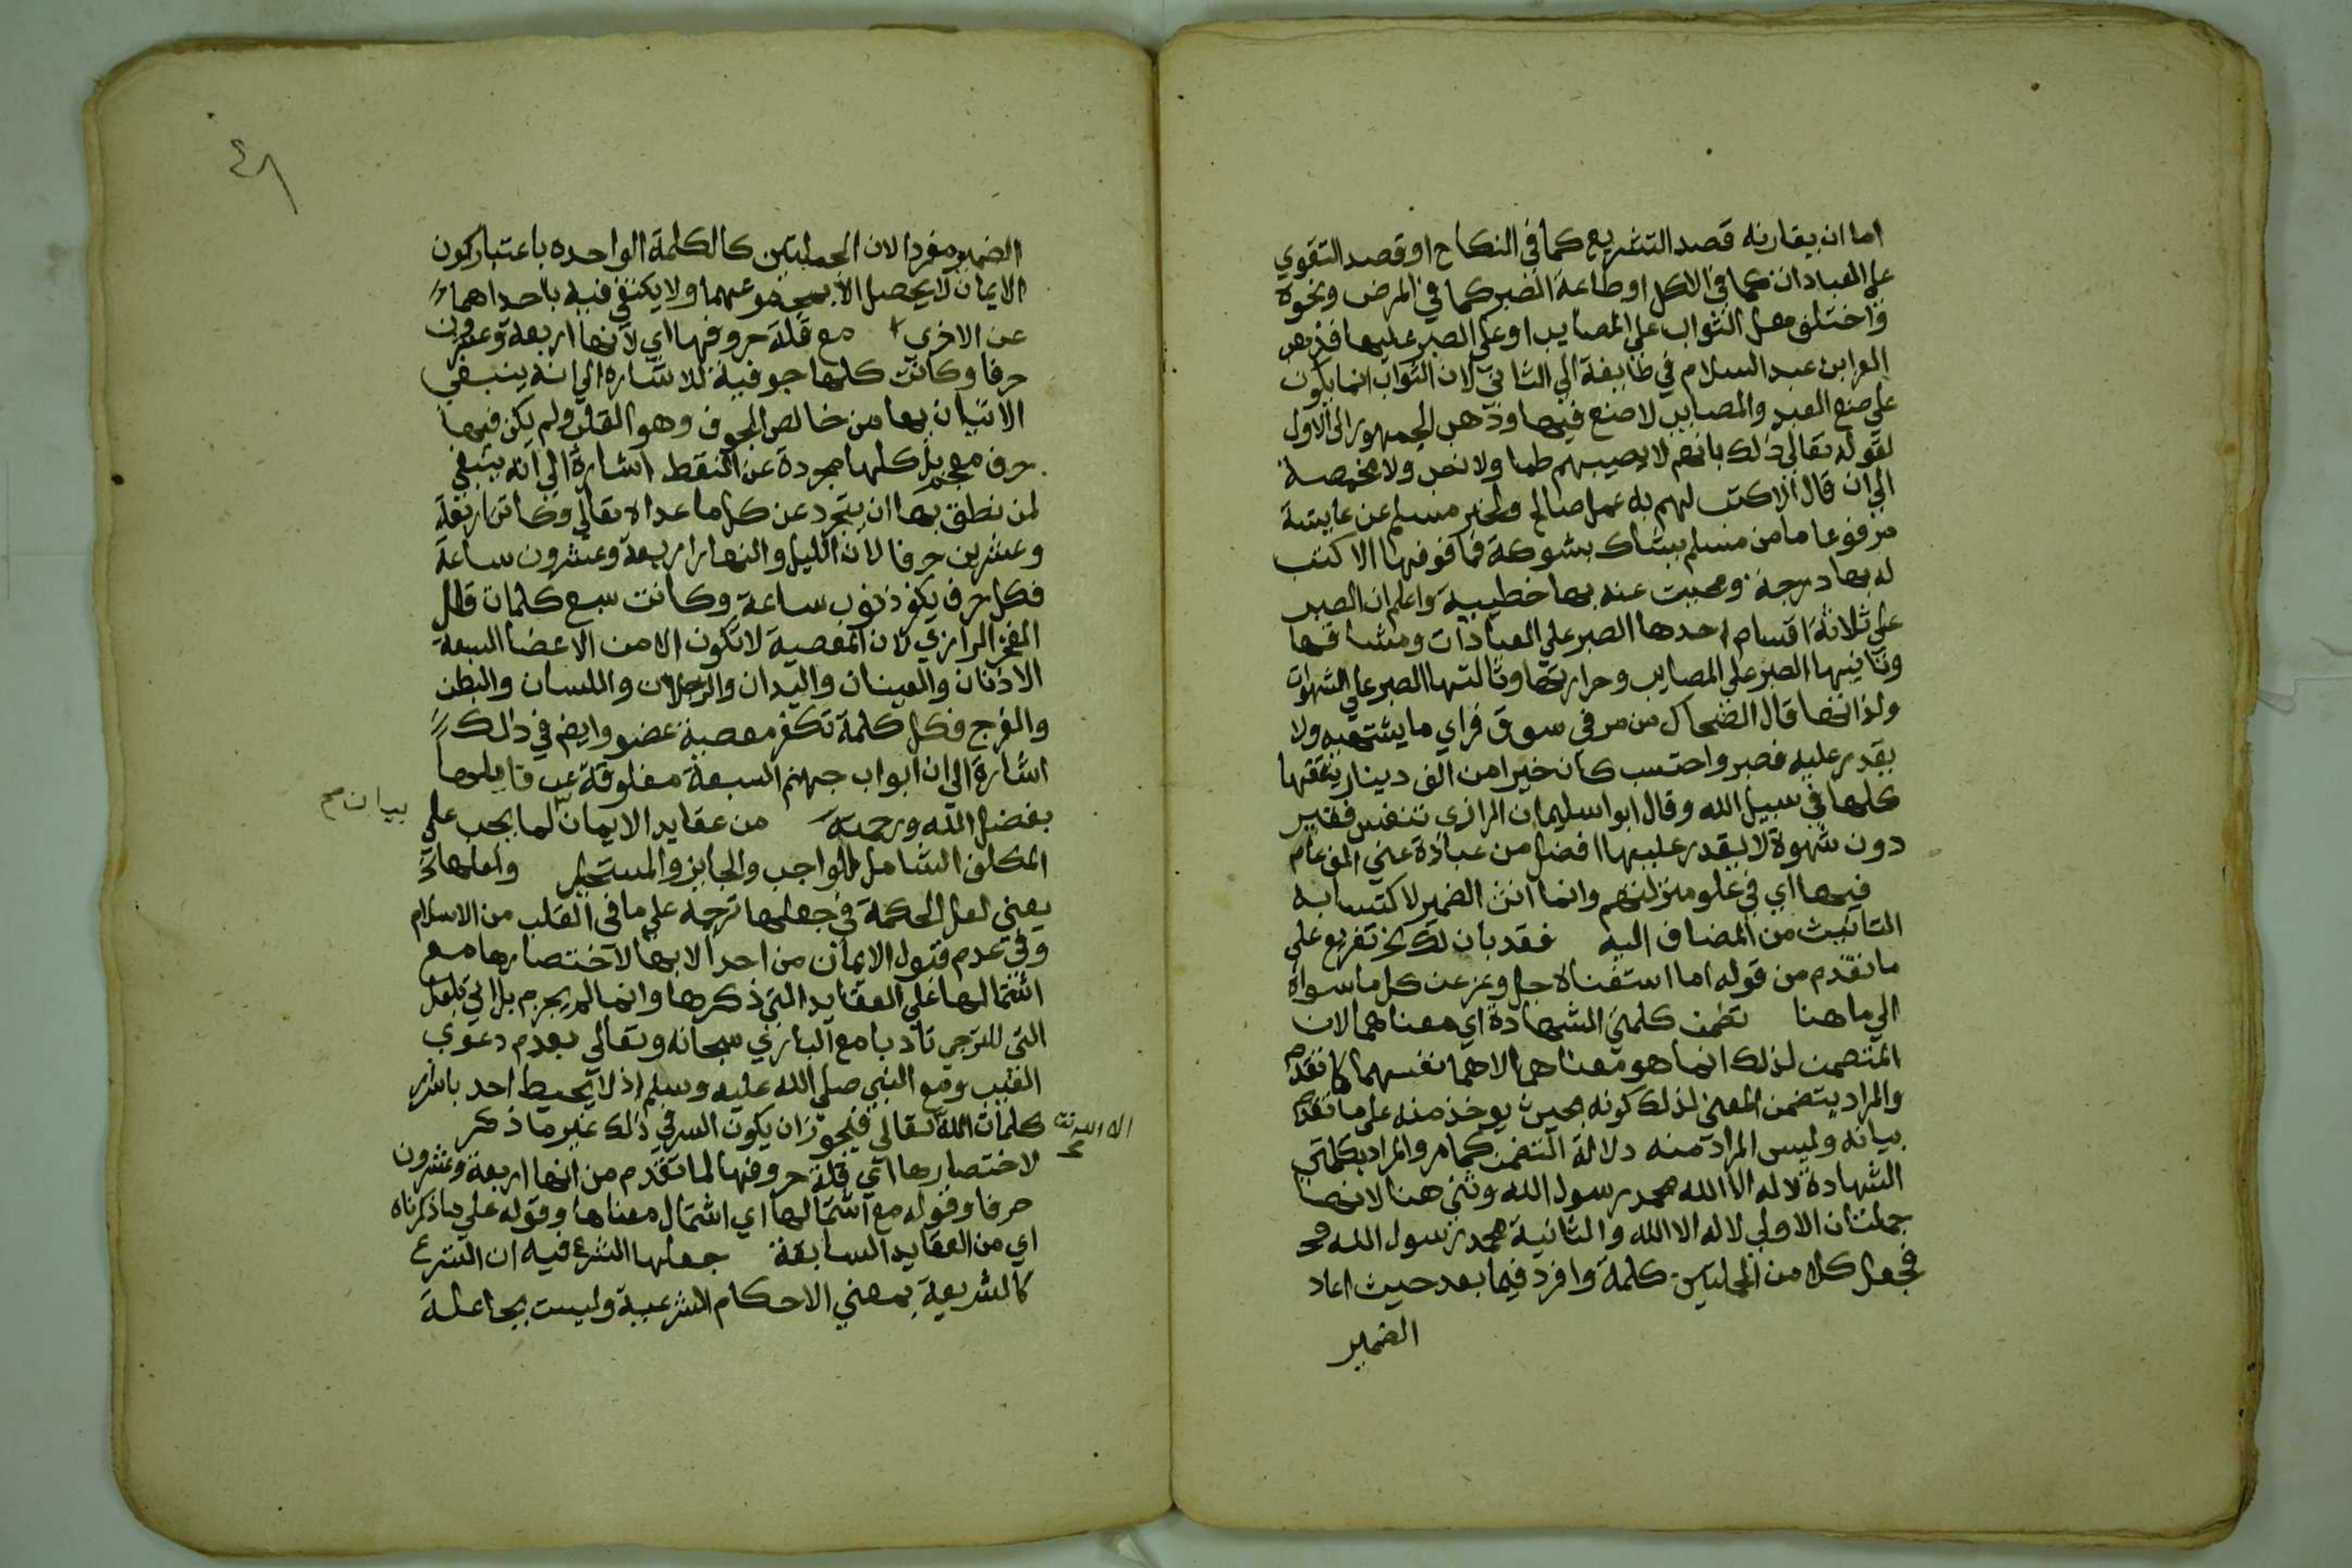 اما ان يقارنه قصد التشريع كما في النكاح او قصد التقوي
على العبادات كما في الاكل او طاعة الصبر كما في المرض ونحوه
واختلف هل الثواب على المصايب او على الصبر عليها فذهب
العز ابن عبد السلام في طايفة الي الثاني لان الثواب انما يكون
علي صنع العبد والمصايب لا صنع فيها وذهب الجمهور الى الاول
لقوله تعالي ذلك بانهم لا يصيبهم ظما ولا نصب ولا مخمصة
الي ان قال الا كتب لهم به عمل صالح ولخبر مسلم عن عايشة
مرفوعا ما من مسلم يشاك بشوكة فما فوقها الا كتب
له بها درجة ومحيت عنه بها خطيية واعلم ان الصبر
علي ثلاثة اقسام احدها الصبر علي العبادات ومشاقها
وثانيها الصبر علي المصايب وحرارتها وثالثها الصبر علي الشهوات
ولذاتها قال الضحاك من مر في سوق فراي ما يشتهيه ولا
يقدر عليه فصبر واحتسب كان خيرا من الف دينار ينفقها
كلها في سبيل الله وقال ابو اسليمان الرازي تنفس فقير
دون شهوة لا يقدر عليها افضل من عبادة غني الف عام
فيها اي في علو منزلتهم وانما انث الضمير لاكتسابه
التانيث من المضاف اليه فقد بان لك الخ تفريع على
ما تقدم من قوله اما استغناه جل وعز عن كل ما سواه
الي ما هنا تضمن كلمتي الشهادة اي معناهما لان
المتضمن لذلك انما هو معناهما لا هما نفسهما كما تقدم
والمراد يتضمن المعني لذلك كونه بحيث يوخذ منه على ما تقدم
بيانه وليس المراد منه دلالة التضمن كما مر والمراد بكلمتي
الشهادة لا اله الا الله محمد رسول الله وثني هنا لانها
جملتان الاولي لا اله الا الله والثانية محمد رسول الله
فجعل كلا من الجملتين كلمة وافرد فيما بعد حيث اعاد
الضمير
٤٨
الضمير مفردا لان الجملتين كالكلمة الواحده باعتبار كون
الايمان لا يحصل الا بمجموعهما ولا يكتفي فيه باحداهما
عن الاخري مع قلة حروفها اي لانها اربعة وعشرون
حرفا وكانت كلها جوفية للاشاره الي انه ينبغي
الاتيان بها من خالص الجوف وهو القلب ولم يكن فيها
حرف معجم بل كلها مجردة عن النقط اشارة الي انه ينبغي
لمن نطق بها ان يتجرد عن كل ما عداه تعالي وكانت اربعة
وعشرين حرفا لان الليل والنهار اربعة وعشرون ساعة
فكل حرف يكفر ذنوب ساعة وكانت سبع كلمات قال
الفخر الرازي لان المعصية لا تكون الا من الاعضا السبعة
الاذنان والعينان واليدان والرجلان واللسان والبطن
والفرج فكل كلمة تكفر معصية عضو وايضا في ذلك
اشارة الي ان ابواب جهنم السبعة مغلوقة عن قايلها
بفضل الله ورحمته من عقايد الايمان لما يجب علي
بيان
المكلف الشامل للواجب والجايز والمستحيل ولعلها
يعني لعل الحكمة في جعلها ترجمة علي ما في القلب من الاسلام
وفي عدم قبول الايمان من احد الا بها لاختصارها مع
اشتمالها علي العقايد التي ذكرها وانما لم يجزم بل اتي بلعل
التي للترجي تادبا مع الباري سبحانه وتعالي بعدم دعوي
الغيب ومع النبي صلي الله عليه وسلم اذ لا يحيط احد باسرار
كلمات الله تعالي فيجوز ان يكون السر في ذلك غير ما ذكر
لاختصارها اي قلة حروفها لما تقدم من انها اربعة وعشرون
حرفا وقوله مع اشتمالها اي اشتمال معناها وقوله علي ما ذكرناه
اي من العقايد السابقة جعلها الشرع فيه ان الشرع
كالشريعة بمعني الاحكام الشرعية وليست بجاعلة